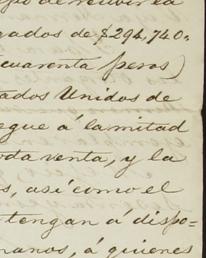 de recibir la
gados de $294,740.
cuarenta pesos)
tados Unidos de
egue á la mitad
oda venta, y la
s, así como el
tengan á dispo-
manos, á quienes